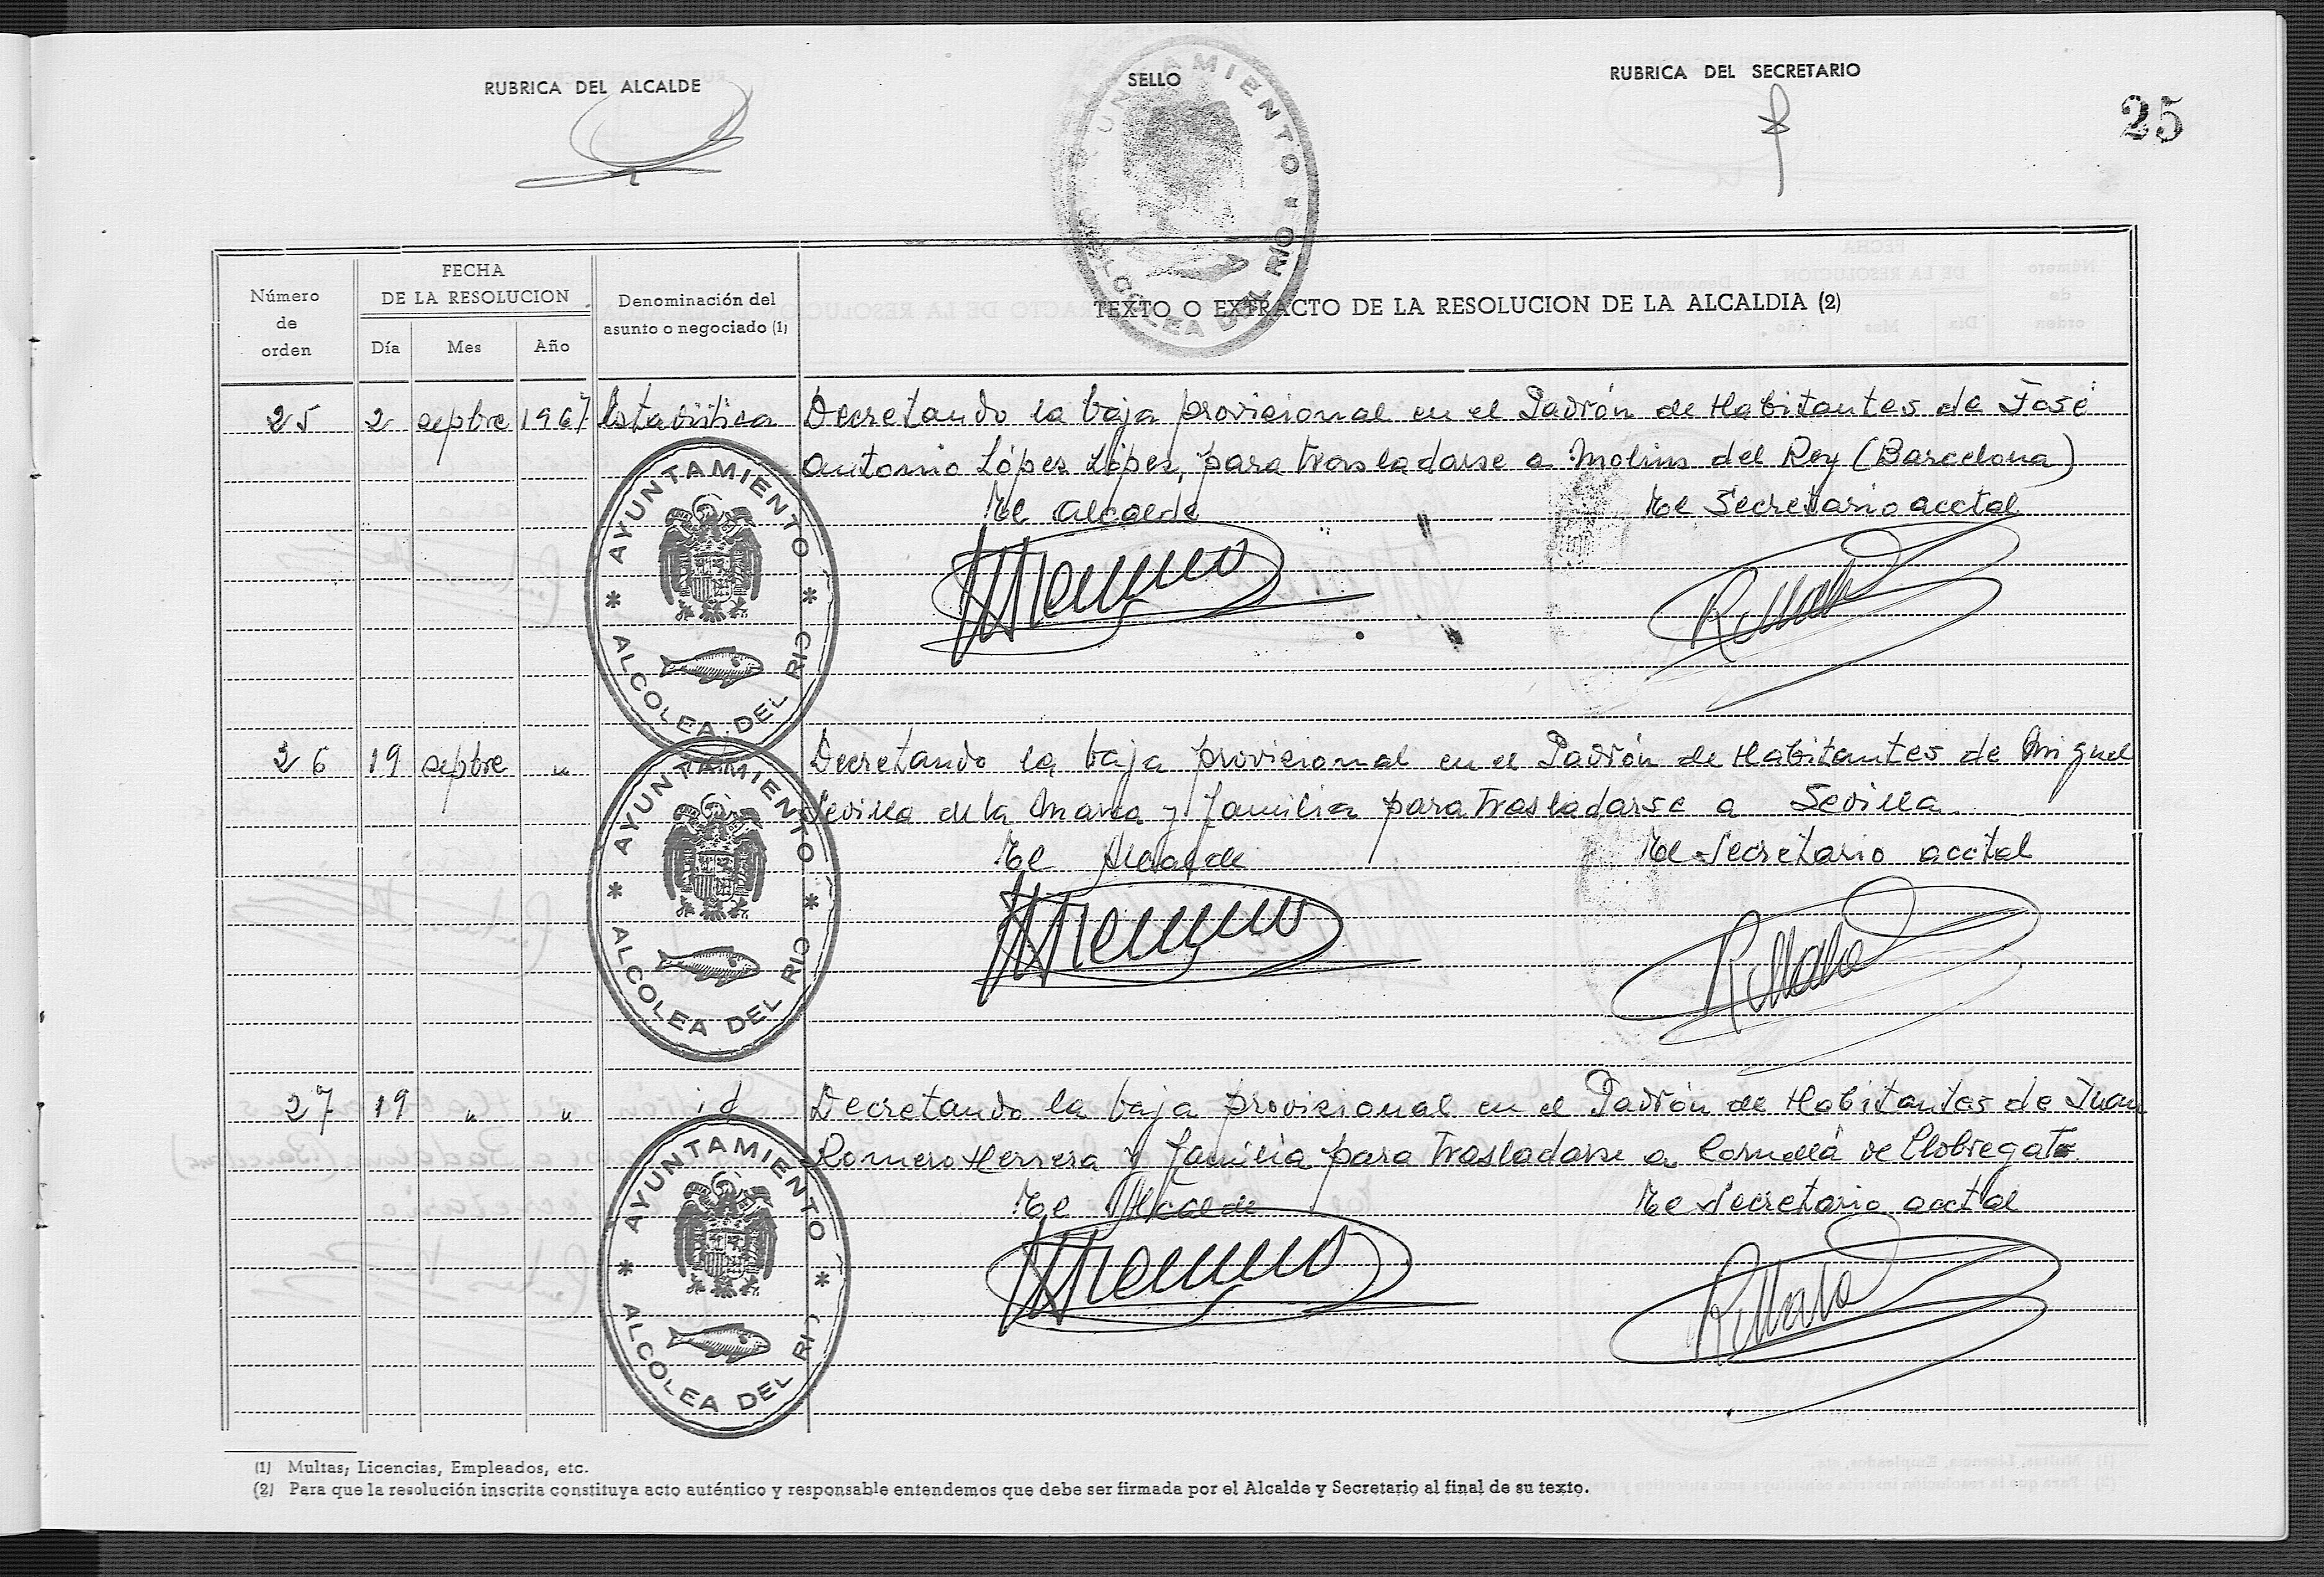 RUBRICA DEL ALCALDE
SELLO
RUBRICA DEL SECRETARIO
25
AYUNTAMIENTO * ALCOLEA DEL RIO
Número de orden
FECHA DE LA RESOLUCION
Día Mes Año
Denominación del asunto o negociado (1)
TEXTO O EXTRACTO DE LA RESOLUCION DE LA ALCALDIA (2)
25 2 sepbre 1967 Estadística Decretando la baja provisional en el Padrón de Habitantes de José
Antonio López López, para trasladarse a Molins del Rey (Barcelona)
El Alcalde El Secretario acctal
* AYUNTAMIENTO * ALCOLEA DEL RIO
26 19 sepbre " Decretando la baja provisional en el Padrón de Habitantes de Miguel
Sevilla de la Marca y familia para trasladarse a Sevilla.
El Alcalde El Secretario acctal
* AYUNTAMIENTO * ALCOLEA DEL RIO
27 19 " " id Decretando la baja provisional en el Padrón de Habitantes de Juan
Romero Herrera y familia para trasladarse a Cornellá de Llobregat
El Alcalde El Secretario acctal
* AYUNTAMIENTO * ALCOLEA DEL RIO
(1) Multas, Licencias, Empleados, etc.
(2) Para que la resolución inscrita constituya acto auténtico y responsable entendemos que debe ser firmada por el Alcalde y Secretario al final de su texto.